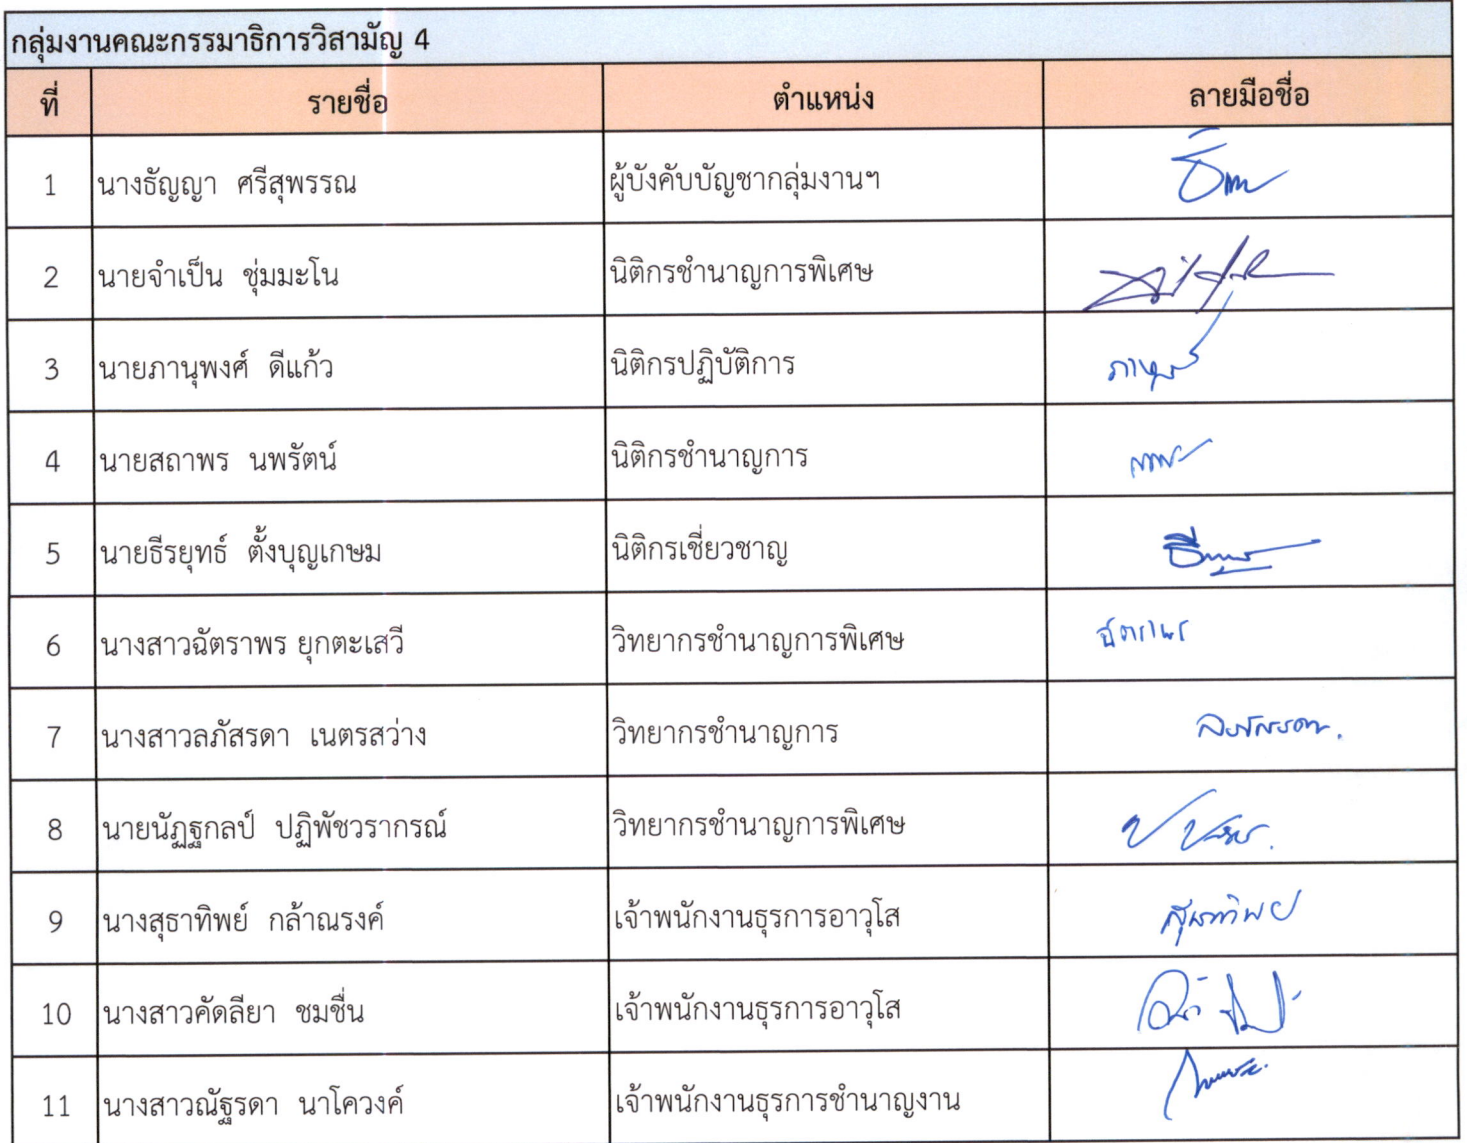 กลุ่มงานคณะกรรมาธิการวิสามัญ 4
ที่ รายชื่อ ตำแหน่ง ลายมือชื่อ
1 นางธัญญา ศรีสุพรรณ ผู้บังคับบัญชากลุ่มงานฯ
2 นายจำเป็น ชุ่มมะโน นิติกรชำนาญการพิเศษ
3 นายภานุพงศ์ ดีแก้ว นิติกรปฏิบัติการ
4 นายสถาพร นพรัตน์ นิติกรชำนาญการ
5 นายธีรยุทธ์ ตั้งบุญเกษม นิติกรเชี่ยวชาญ
6 นางสาวฉัตราพร ยุกตะเสวี วิทยากรชำนาญการพิเศษ ฉัตราพร
7 นางสาวลภัสรดา เนตรสว่าง วิทยากรชำนาญการ ลภัสรดา.
8 นายนัฏฐกลป์ ปฏิพัชวรากรณ์ วิทยากรชำนาญการพิเศษ
9 นางสุธาทิพย์ กล้าณรงค์ เจ้าพนักงานธุรการอาวุโส สุธาทิพย์
10 นางสาวคัดลียา ชมชื่น เจ้าพนักงานธุรการอาวุโส
11 นางสาวณัฐรดา นาโควงค์ เจ้าพนักงานธุรการชำนาญงาน